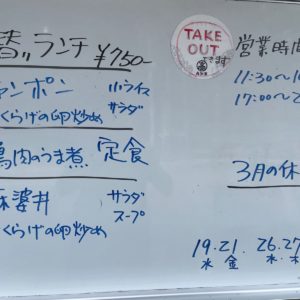 替ランチ ¥750-
ャンポン 小ライス
サラダ
くらげの卵炒め
鶏肉のうま煮 定食
麻婆丼 サラダ
スープ
くらげの卵炒め
TAKE
OUT
できます
営業時間
11:30〜1
17:00〜2
3月の休
19.21. 26.27
水 金 水.木